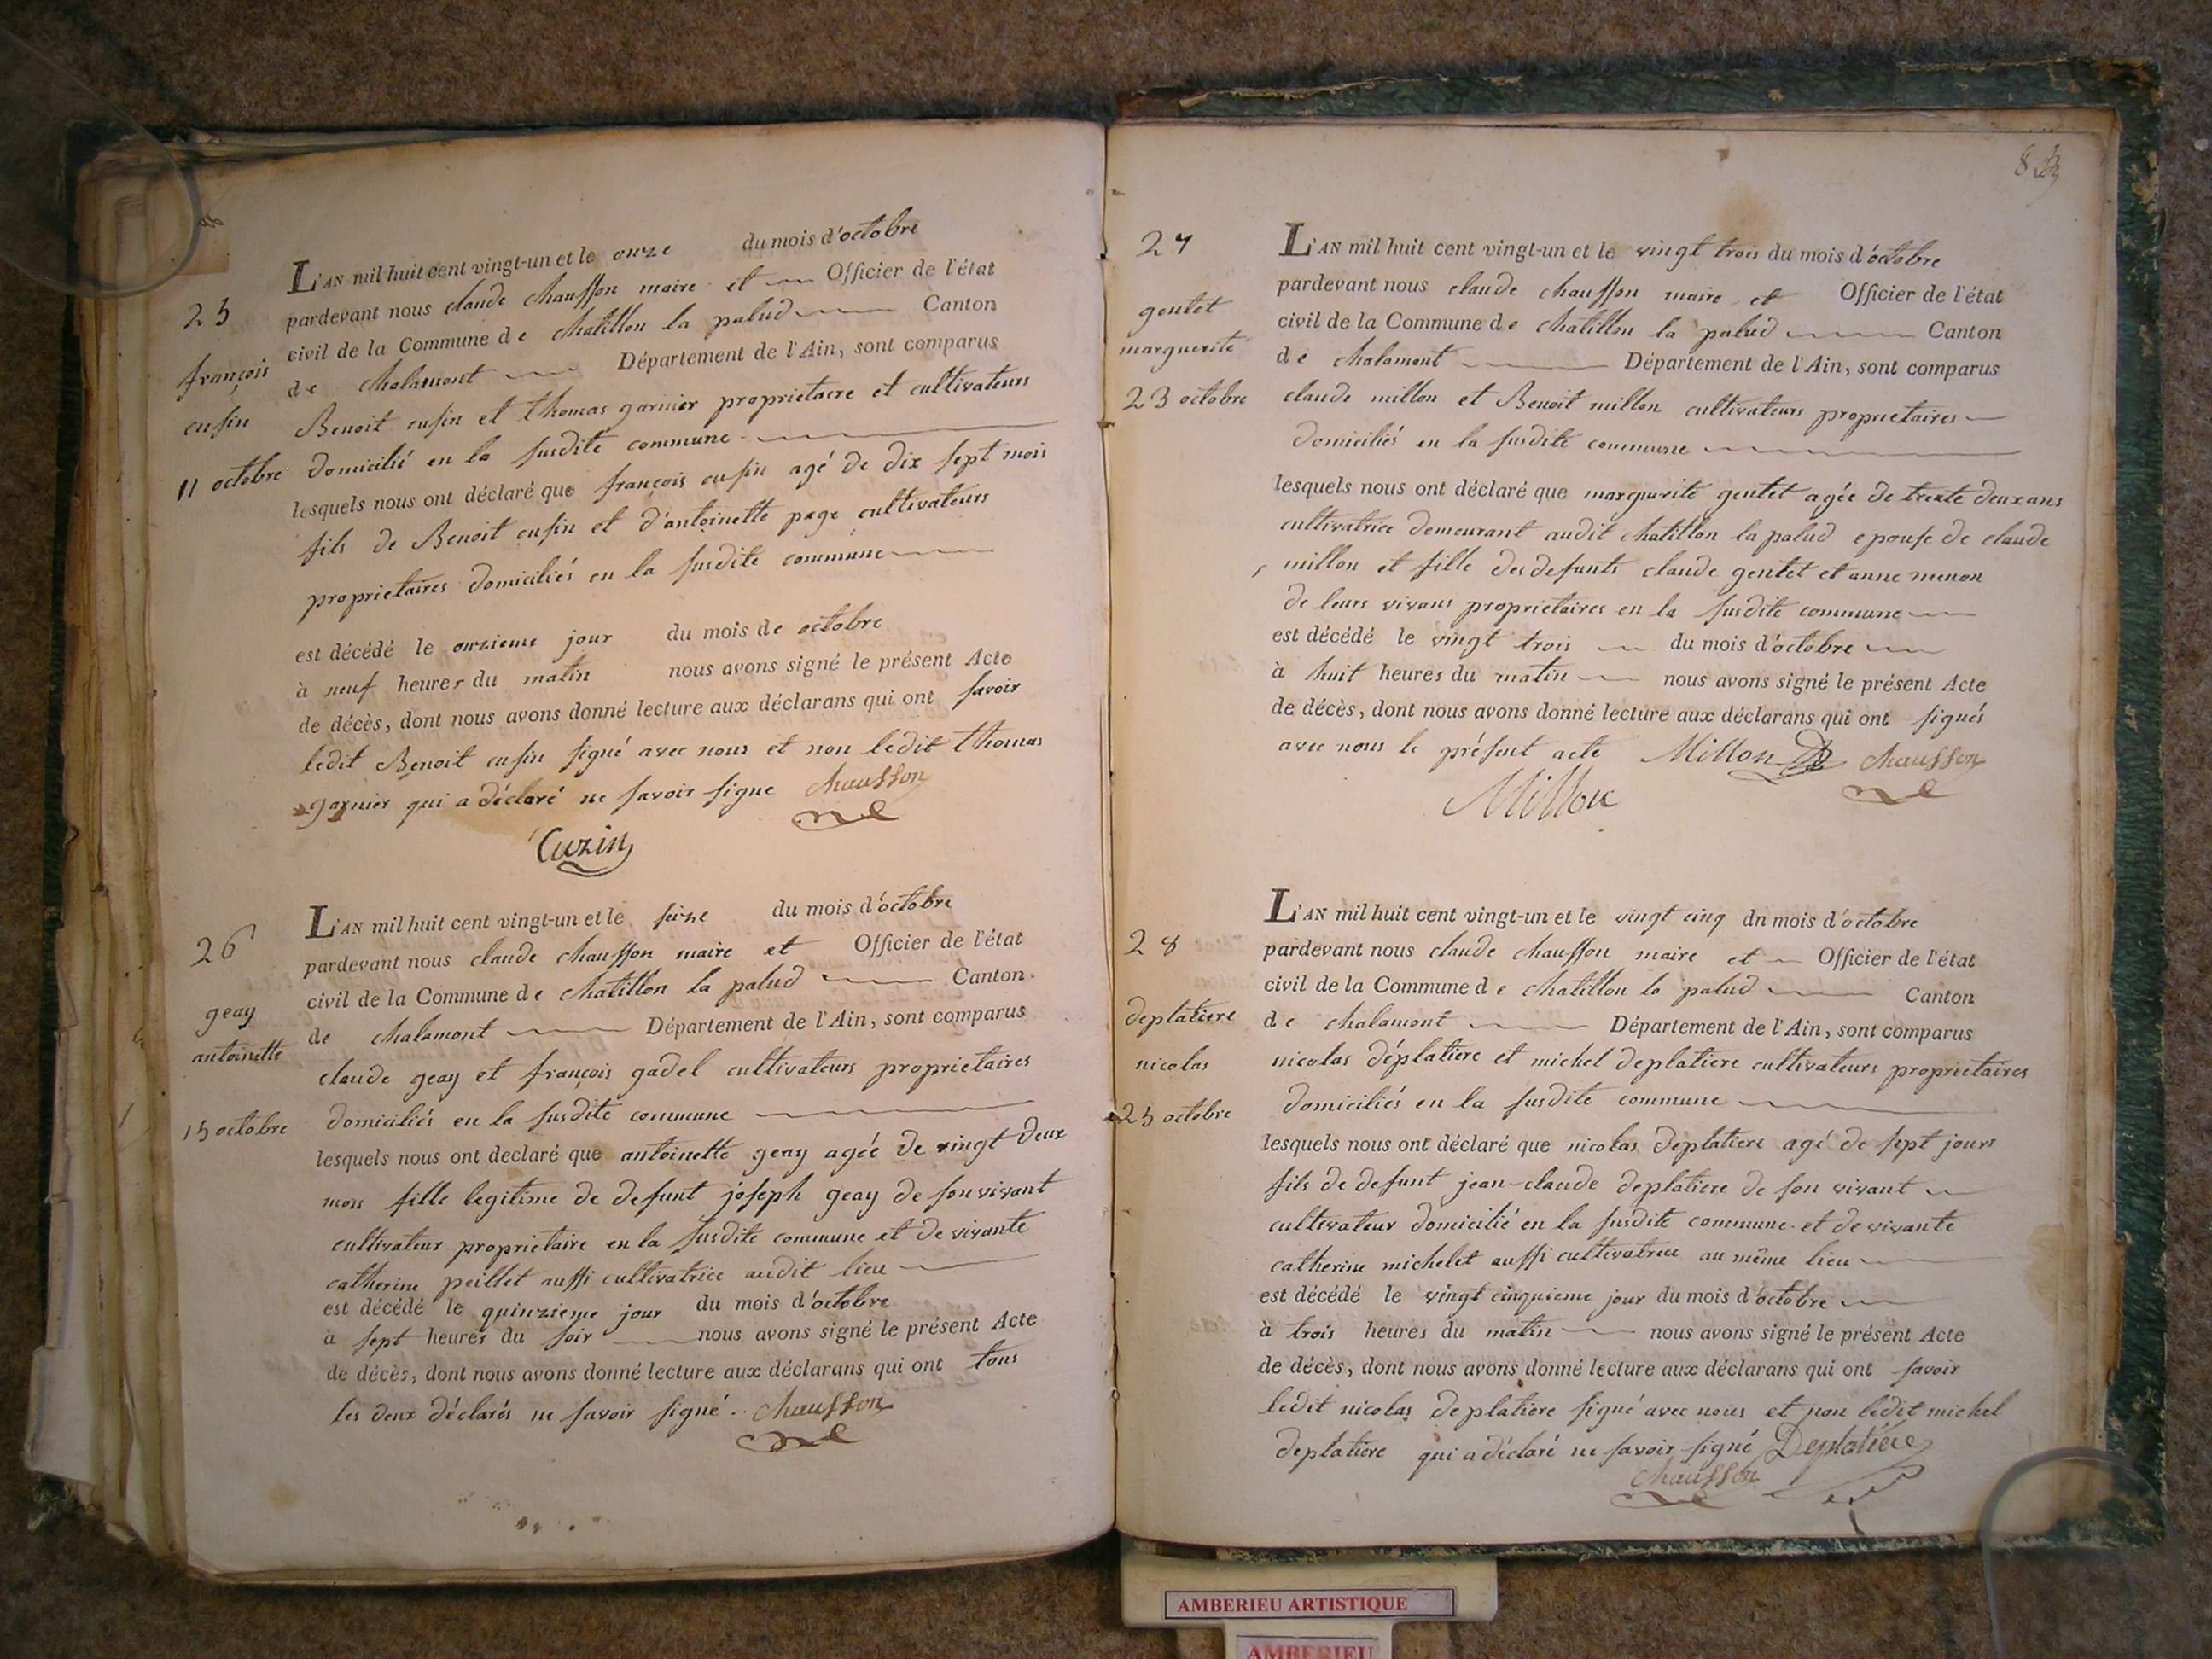 25
françois
cusin
11 octobre
L'AN mil huit cent vingt-un et le onze du mois d'octobre
pardevant nous claude chausson maire et Officier de l'état
civil de la Commune de chatillon la palud Canton
de chalamont Département de l'Ain, sont comparus
Benoit cusin et thomas garnier proprietaire et cultivateurs
domicilié en la susdite commune
lesquels nous ont déclaré que françois cusin agé de dix sept mois
fils de Benoit cusin et d'antoinette page cultivateurs
proprietaires domiciliés en la susdite commune
est décédé le onzieme jour du mois de octobre
à neuf heures du matin nous avons signé le présent Acte
de décès, dont nous avons donné lecture aux déclarans qui ont savoir
ledit Benoit cusin signé avec nous et non ledit thomas
garnier qui a déclaré ne savoir signe chausson
Cuzin
26
geay
antoinette
15 octobre
L'AN mil huit cent vingt-un et le seize du mois d'octobre
pardevant nous claude chausson maire et Officier de l'état
civil de la Commune de chatillon la palud Canton
de chalamont Département de l'Ain, sont comparus
claude geay et françois gadel cultivateurs proprietaires
domiciliés en la susdite commune
lesquels nous ont declaré que antoinette geay agée de vingt deux
mois fille legitime de defunt joseph geay de son vivant
cultivateur proprietaire en la susdite commune et de vivante
catherine peillet aussi cultivatrice audit lieu
est décédé le quinzieme jour du mois d'octobre
à sept heures du soir nous avons signé le présent Acte
de décès, dont nous avons donné lecture aux déclarans qui ont tous
les deux déclarés ne savoir signé. chausson
27
gentet
marguerite
23 octobre
L'AN mil huit cent vingt-un et le vingt trois du mois d'octobre
pardevant nous claude chausson maire et Officier de l'état
civil de la Commune de chatillon la palud Canton
de chalamont Département de l'Ain, sont comparus
claude millon et Benoit millon cultivateurs proprietaires
domiciliés en la susdite commune
lesquels nous ont déclaré que marguerite gentet agée de trente deux ans
cultivatrice demeurant audit chatillon la palud epouse de claude
millon et fille des defunts claude gentet et anne menon
de leurs vivans proprietaires en la susdite commune
est décédé le vingt trois du mois d'octobre
à huit heures du matin nous avons signé le présent Acte
de décès, dont nous avons donné lecture aux déclarans qui ont signés
avec nous le présent acte Millon chausson
Millon
28
deplatiere
nicolas
25 octobre
L'AN mil huit cent vingt-un et le vingt cinq dn mois d'octobre
pardevant nous claude chausson maire et Officier de l'état
civil de la Commune de chatillon la palud Canton
de chalamont Département de l'Ain, sont comparus
nicolas déplatiere et michel deplatiere cultivateurs proprietaires
domiciliés en la susdite commune
lesquels nous ont déclaré que nicolas deplatiere agé de sept jours
fils de defunt jean-claude deplatiere de son vivant
cultivateur domicilié en la susdite commune et de vivante
catherine michelet aussi cultivatrice au même lieu
est décédé le vingt cinquieme jour du mois d'octobre
à trois heures du matin nous avons signé le présent Acte
de décès, dont nous avons donné lecture aux déclarans qui ont savoir
ledit nicolas deplatiere signé avec nous et non ledit michel
deplatiere qui a déclaré ne savoir signé Deplatiére
chausson
AMBERIEU ARTISTIQUE
AMBERIEU